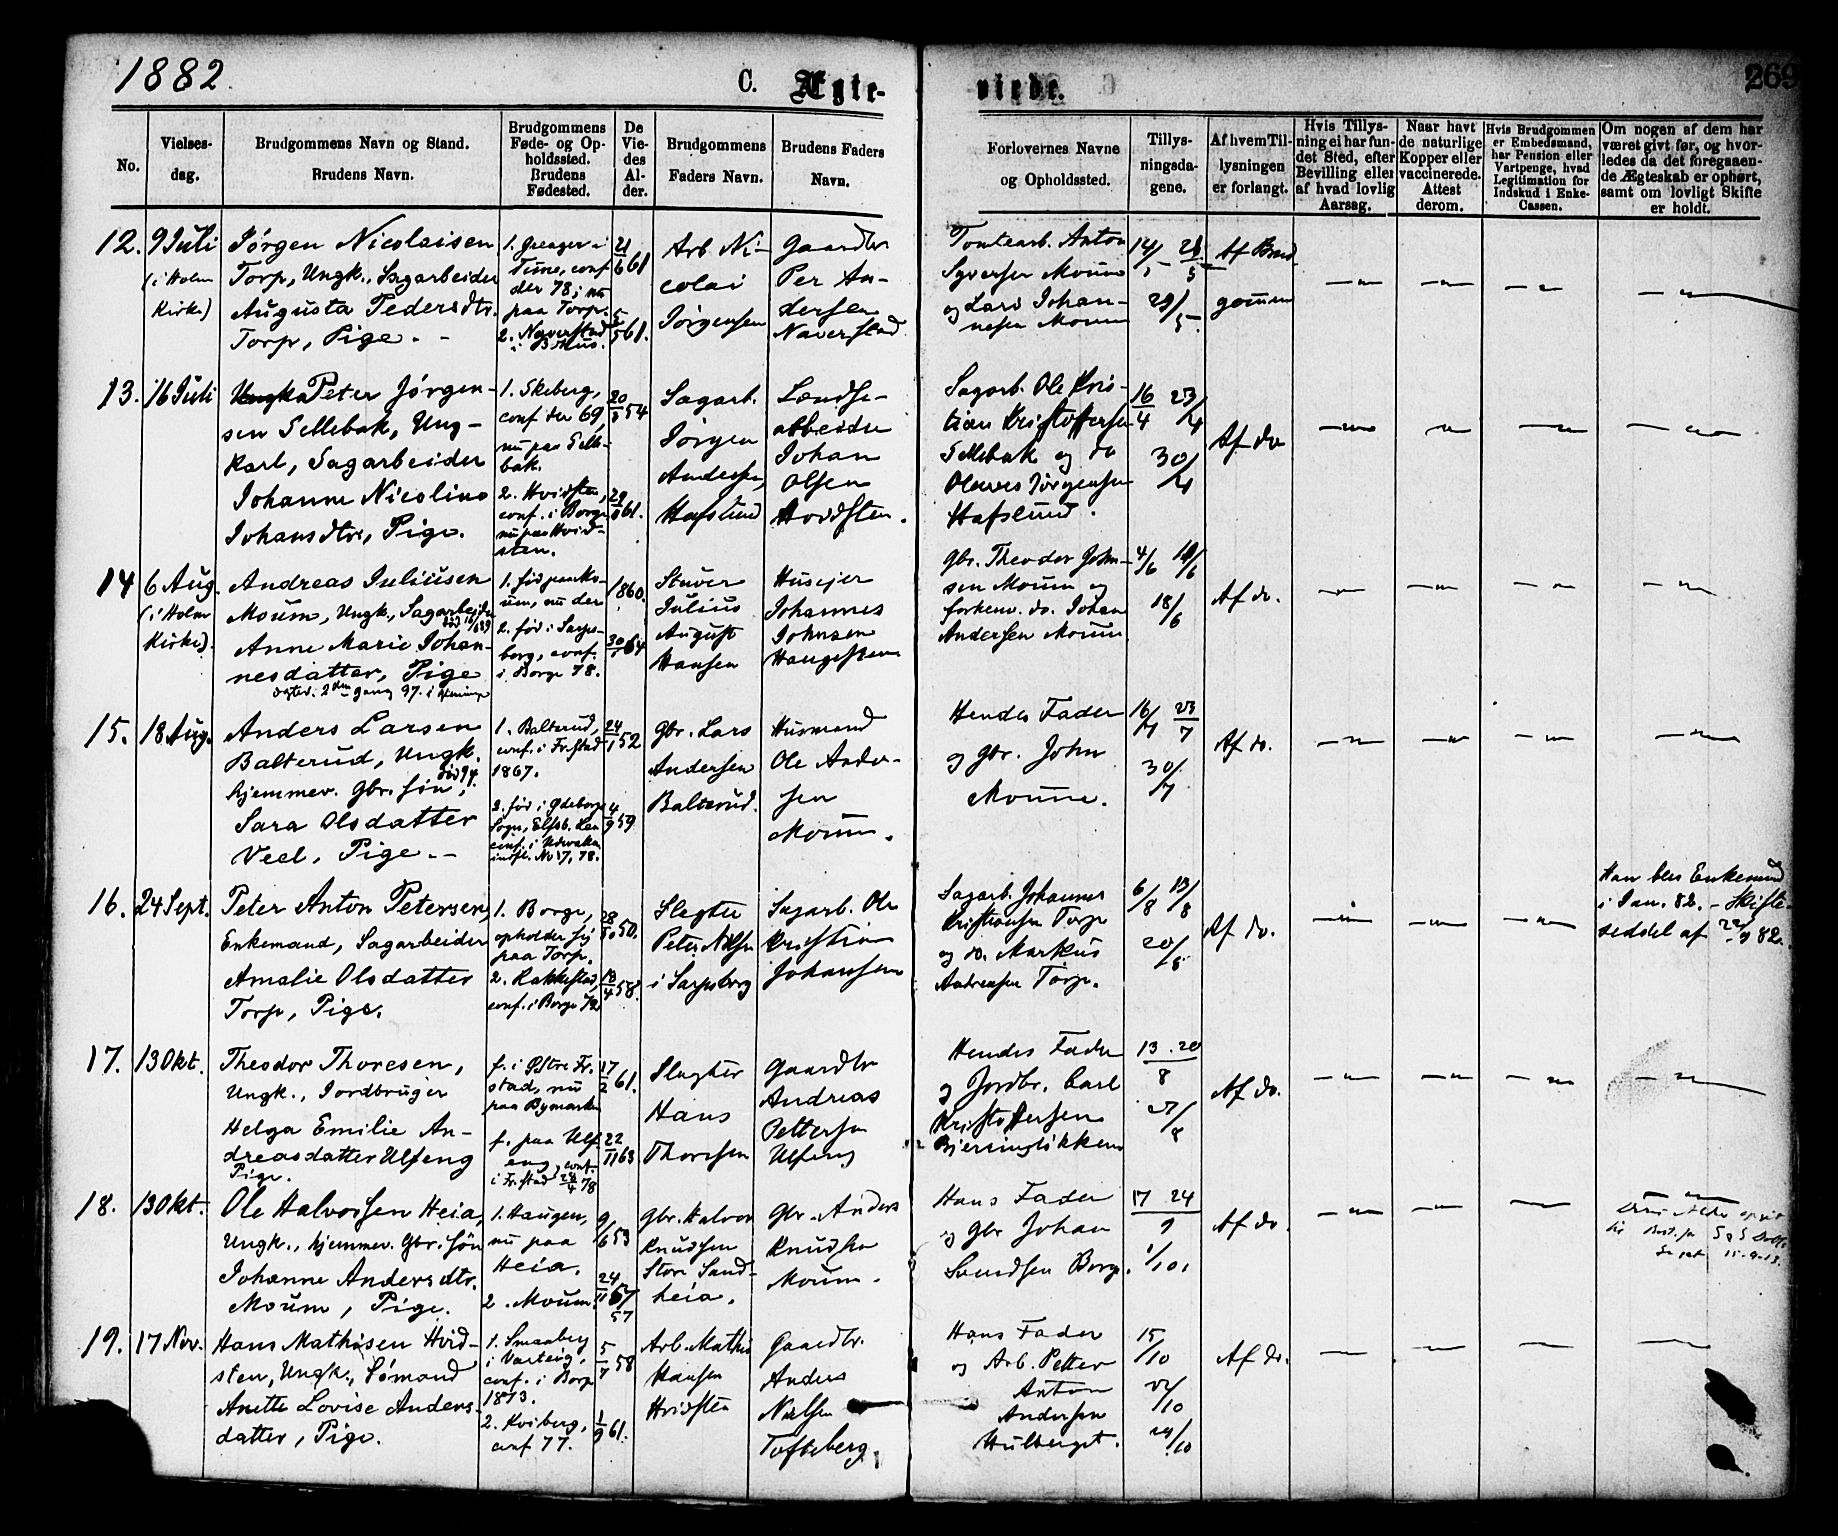 1882.
C. Ægte-
viede.
269
No.
Vielses-
dag.
Brudgommens Navn og Stand.
Brudens Navn.
Brudgommens
Føde- og Op-
holdssted.
Brudens
Fødested.
De
Vie-
des
Al-
der.
Brudgommens
Faders Navn.
Brudens Faders
Navn.
Forlovernes Navne
og Opholdssted.
Tillys-
ningsda-
gene.
Af hvem Til-
lysningen
er forlangt.
Hvis Tillys-
ning ei har fun-
det Sted, efter
Bevilling eller
af hvad lovlig
Aarsag.
Naar havt
de naturlige
Kopper eller
vaccinerede.
Attest
derom.
Hvis Brudgommen
er Embedsmand,
har Pension eller
Vartpenge, hvad
Legitimation for
Indskud i Enke-
Cassen.
Om nogen af dem har
været givt før, og hvor-
ledes da det foregaaen-
de Ægteskab er ophørt,
samt om lovligt Skifte
er holdt.
12.
9 Juli
(i Holm
Kirke)
Jørgen Nicolaisen
Torp, Ungk., Sagarbeider
Augusta Pedersdtr.
Torp, Pige.
1. Greager i
Tune, conf
der 78, nu
paa Torp.
2. Naverstad
21/6 61
5/5 61.
Arb. Ni-
colai
Jørgensen
Gaardbr
Per An-
dersen
Naverstad
Tomtearb. Anton
Syversen Moum
og Lars Johan-
nesen Moum
14/5 28/5
29/5
Af Brud-
gommen
13.
16 Juli
Peter Jørgen-
sen Sellebak, Ung-
karl, Sagarbeider
Johanne Nicoline
Johansdtr, Pige.
1. Skeberg,
conf der 69,
nu paa Selle-
bak.
2. Hvidsten,
conf. i Borge
nu paa Hvid-
sten.
20/8 54
61.
Sagarb.
Jørgen
Andersen,
Hafslund
Landse-
arbeider
Johan
Olsen
Hvidsten.
Sagarb. Ole Kris-
tian Kristoffersen
Sellebak og do
Olaves Jørgensen
Hafslund.
16/4 23/4
30/4
Af do
14
6 Aug.
(i Holm
Kirke).
Andreas Juliusen
Moum, Ungk, Sagarbeider
Anne Marie Johan-
nesdatter, Pige
1. født paa Mo-
um, nu der
2. född i Sarps-
borg, conf.
i Borge 78.
1860.
64
Stuver
Julius
August
Hansen
Huseier
Johannes
Johnsen
Haugesten
Gbr. Theodor John-
sen Moum og
forhenv. do. Johan
Andersen Moum
4/6
18/6
Af do.
15.
18 Aug.
Anders Larsen
Balterud, Ungk.
hjemmev. Gbr. søn,
Sara Olsdatter
Veel, Pige.
1. Balterud,
conf. i Fr.stad
1867.
24/1 52
4/9 59
Gbr. Lars
Andersen
Balterud.
Husmand
Ole Ander-
sen
Moum.
Hendes Fader
og Gbr. John
Moum.
16/7 23/7
30/7
Af do.
16.
24 Sept.
Peter Anton Petersen,
Enkemand, Sagarbeider
Amalie Olsdatter
Torp, Pige.
1. Borge,
opholder sig
paa Torp.
2. Rakkestad,
conf. i Borge 72
50.
18/4 58.
Slegter
Peter Nilsen
i Sarpsborg
Sagarb. Ole
Kristian
Johansen
Sagarb. Johannes
Kristiansen Torp
og do. Markus
Andreasen Torp.
6/8 13/8
20/8
Af do.
Han blev Enkemand
i Jan. 82. - Skifte-
seddel af 22/9 82.
17.
13 Okt.
Theodor Thoresen,
Ungk., Jordbruger
Helga Emilie An-
dreasdatter Ulfeng
Pige.
f. i Østre Fr.
stad, nu
paa Bymarken
f. paa Ulf-
eng, conf.
i Fr.stad 28/4 78
17/2 61.
22/11 63
Slagter
Hans
Thoresen
Gaardbr
Andreas
Pettersen
Ulfeng
Hendes Fader
og Jordbr. Carl
Kristoffersen
Bjerringløkken
13 . 20/8
27/8
Af do.
18.
13 Okt.
Ole Halvorsen Heia,
Ungk., hjemmev. Gbr. søn
Johanne Andersdtr.
Moum, Pige.
1. Haugen,
nu paa
Heia.
2. Moum.
9/6 53
24/11 57
57
Gbr. Halvor
Knudsen
Store Sand-
heia.
Gbr. Anders
Knudsen
Moum.
Hans Fader
og Gbr Johan
Svendsen Borge.
17 24/9
1/10.
Af do.
19.
17 Nov.
Hans Mathisen Hvid-
sten, Ungk., Sømand
Anette Lovise Anders-
datter, Pige.
1. Smaaberg
i Varteig,
conf. i Borge
1873.
2. Kviberg,
conf 77.
5/7 58
1/9 61.
Arb. Mathis
Hansen
Hvidsten
Gaardbr.
Anders
Nielsen
Tofteberg.
Hans Fader
og Arb. Petter
Anton
Andersen
Hulberget.
15/10
22/10
29/10
Af do.